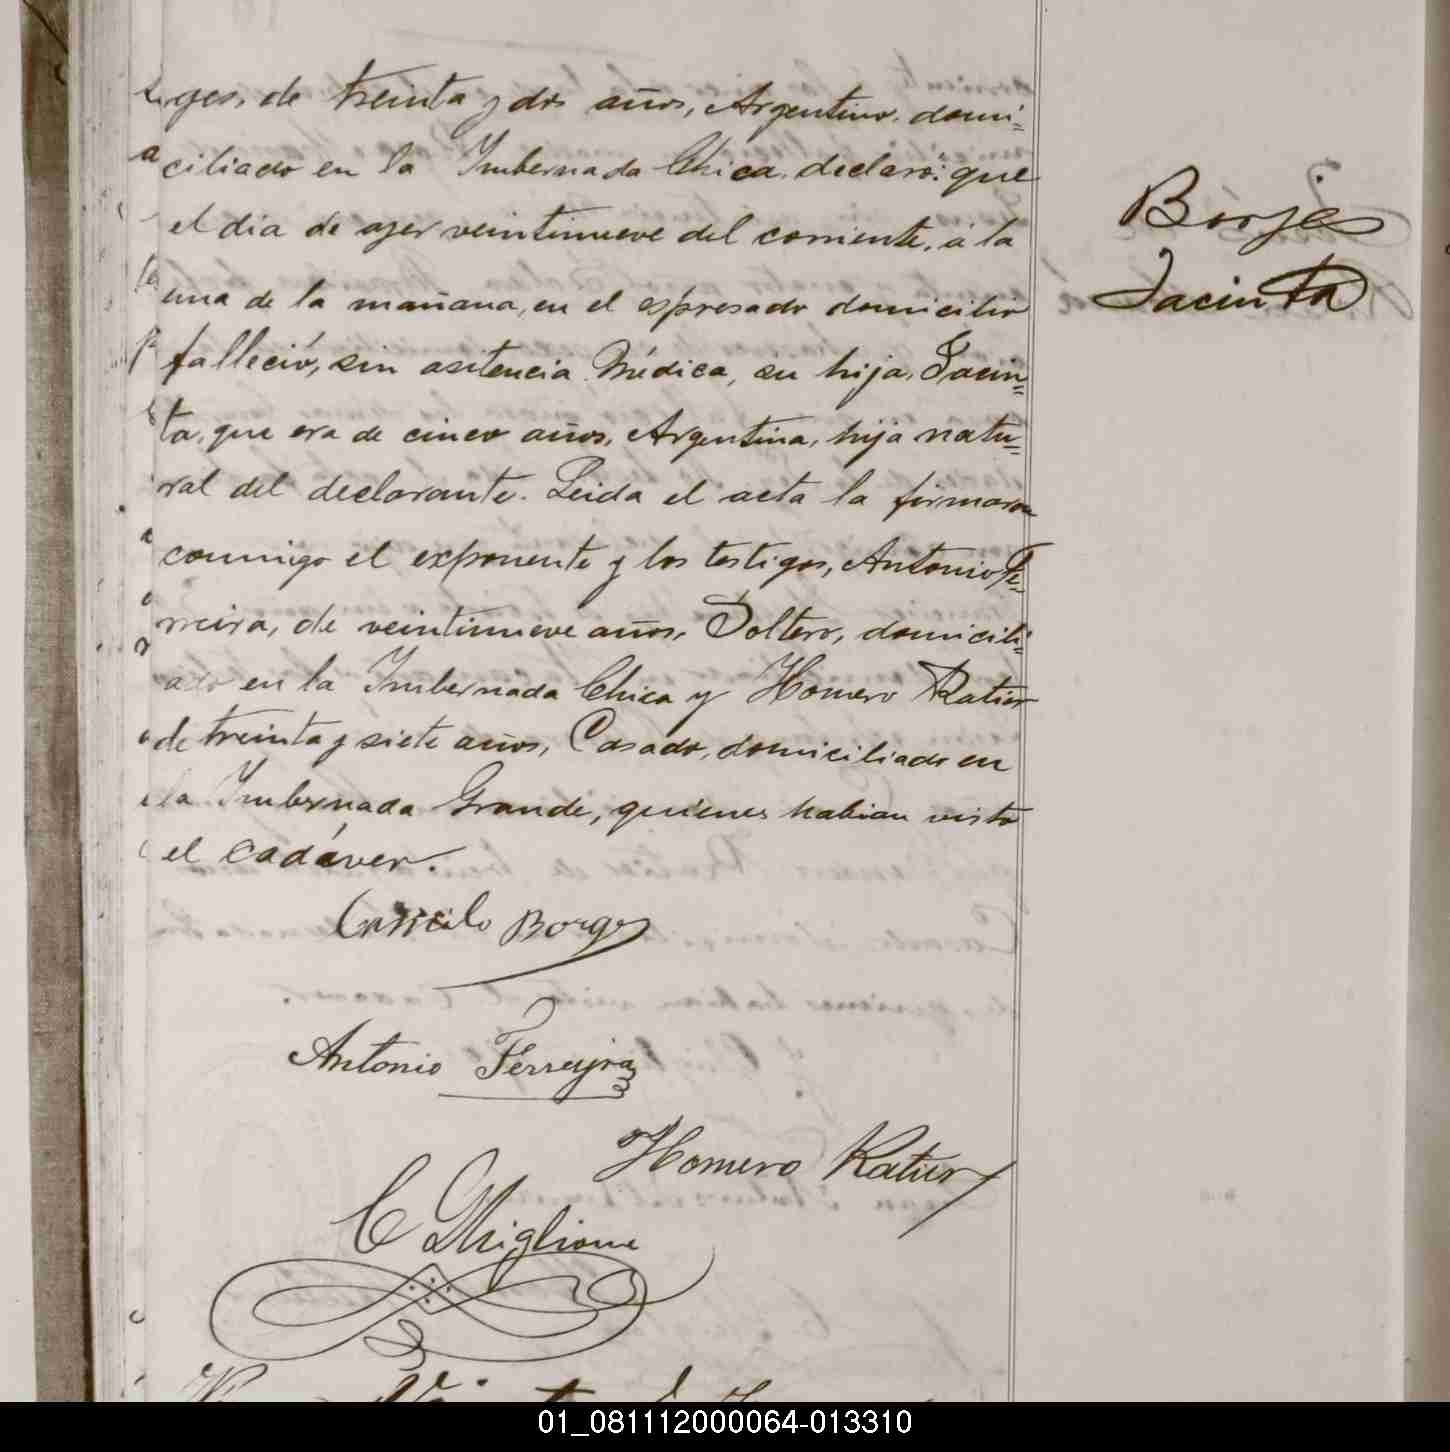 rges, de treinta y dos años, Argentino, domi=
ciliado en la Imbernada Chica, declaró: que
el dia de ayer veintinueve del corriente, á la
una de la mañana, en el espresado domicilio
falleció, sin asitencia Médica, su hija, Jacin=
ta, que era de cinco años, Argentina, hija natu=
ral del declarante. Leida el acta la firmaron
conmigo el exponente y los testigos, Antonio Fe=
rreira, de veintinueve años, Soltero, domicili=
ado en la Imbernada Chica y Homero Ratier
de treinta y siete años, Casado, domiciliado en
la Imbernada Grande, quienes habian visto
el cadáver.
Borjes
Jacinta
Borges
Antonio Ferreyra
Homero Ratier
C Ghiglione
01_081112000064-013310